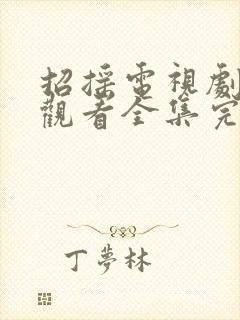 招搖電視劇
觀看全集完
丁夢林